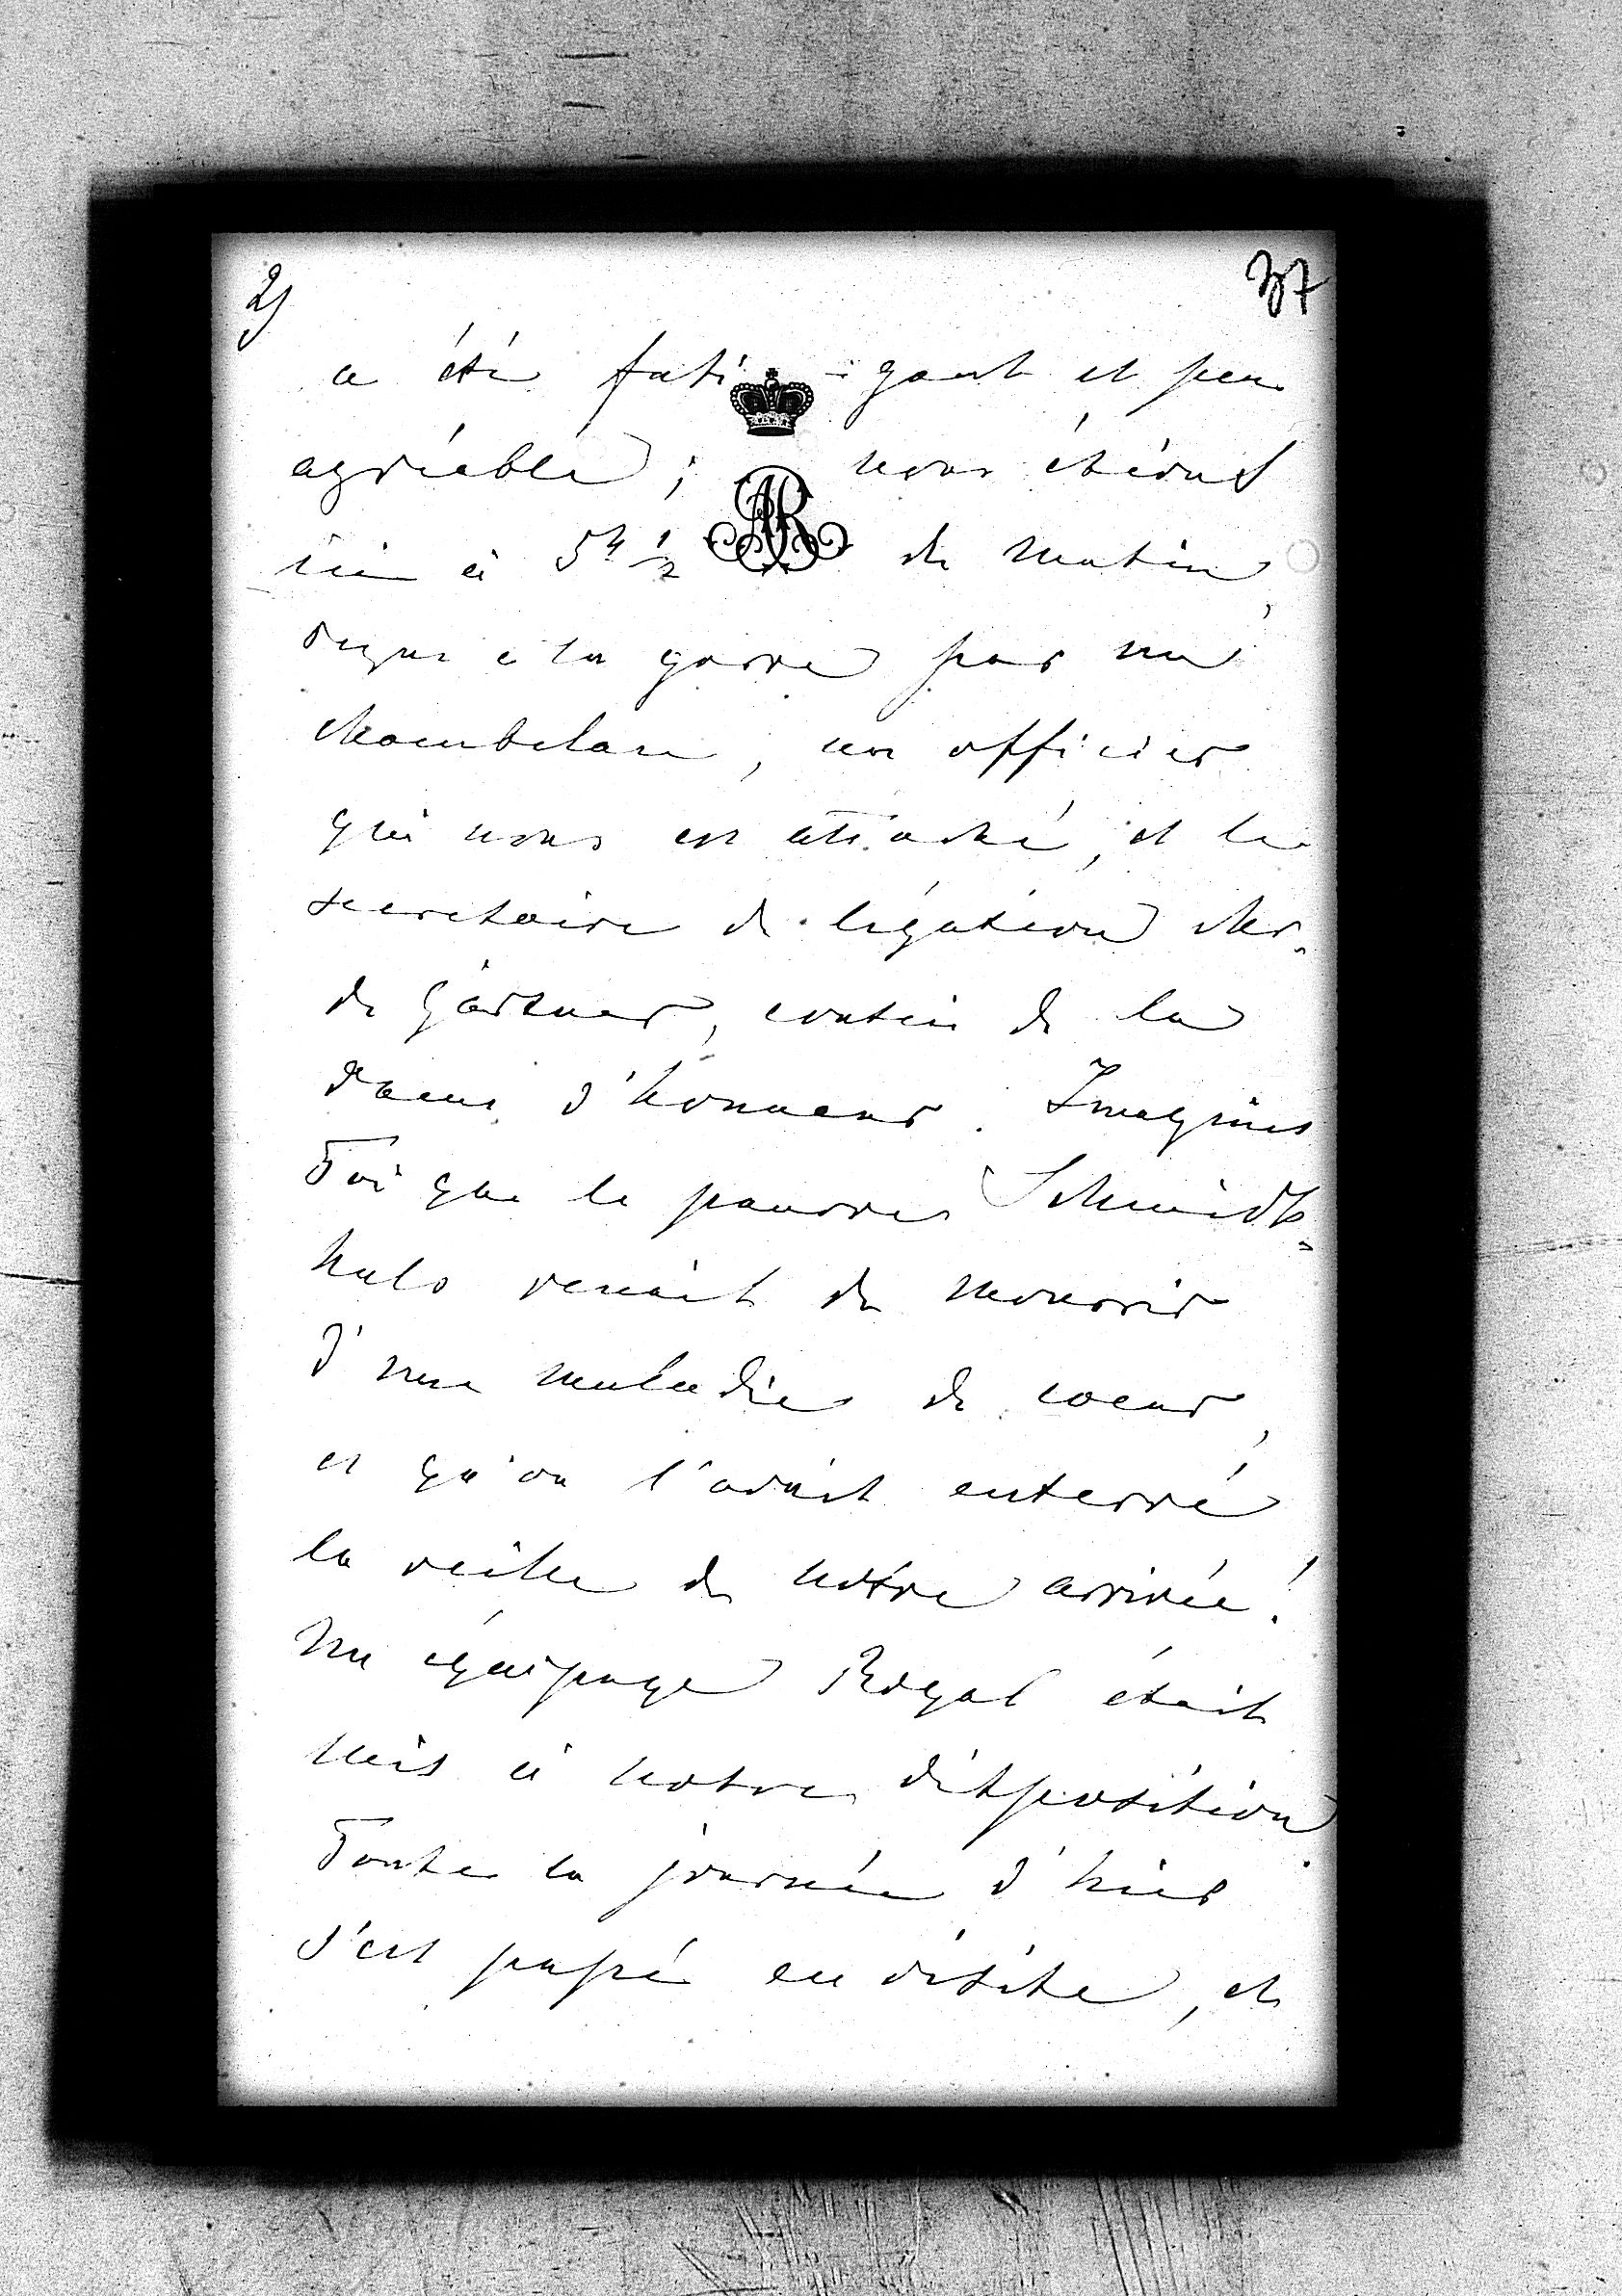 2) 37
a été fati-gant et peu
agréable; nous étions
ici à 5h 1/2 du matin,
reçus à la garre par un
chambelan, un officier
qui nous est attaché, et le
secretaire de légation Mr.
de Gärtner, cousin de la
dame d'honneur. Imagines
Toi que le pauvre Schmidt-
hals venait de mourrir
d'une maladie de coeur,
et qu'on l'avait enterré
la veille de notre arrivée!
Un équipage Royal était
mis à notre disposition.
Toute la journée d'hier
s'est passé en visite, et